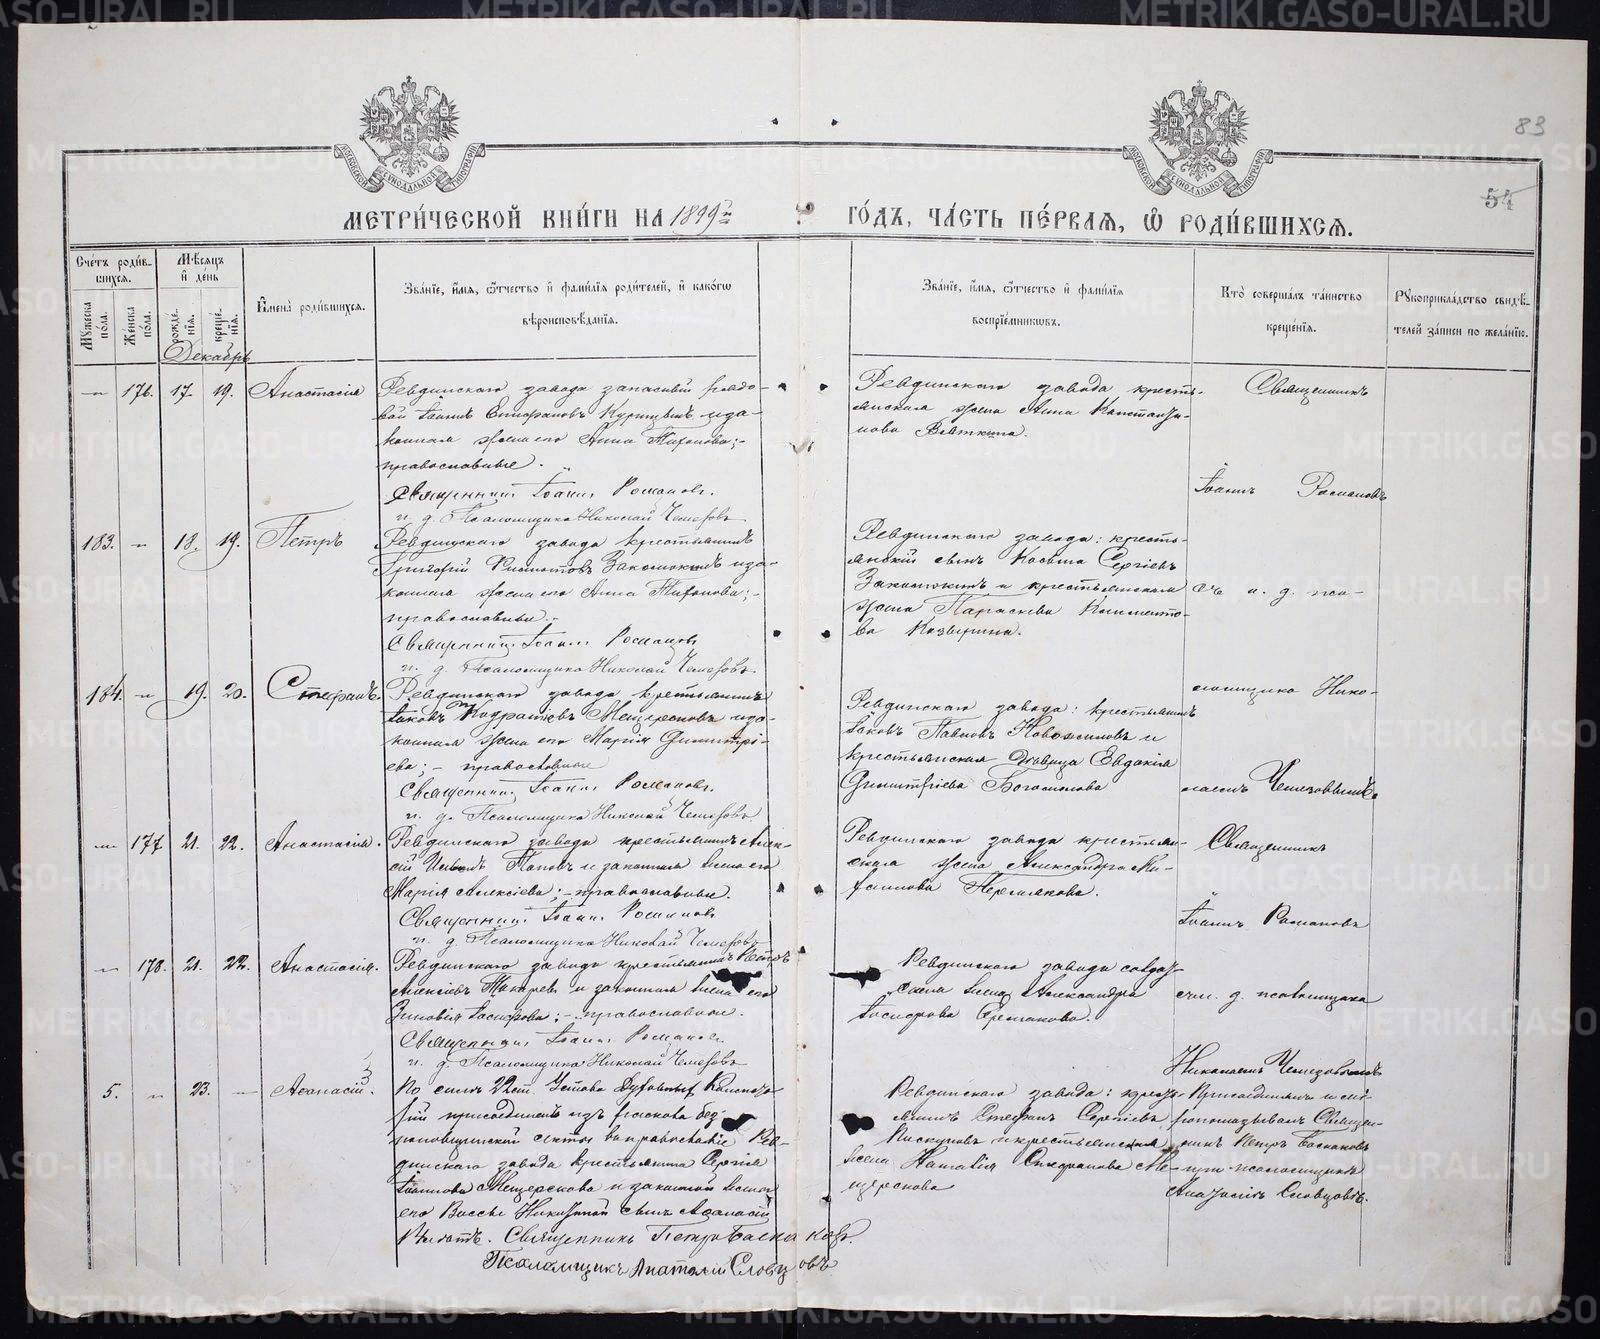 83
54
МЕТРИ́ЧЕСКОЙ КНИ́ГИ НА 1899й ГО́ДЪ, ЧА́СТЬ ПЕ́РВАЯ, Ѡ҆ РОДИ́ВШИХСЯ.
Сче́тъ роди́в-
шихся.
Мужеска по́ла.
Же́нска по́ла.
Мѣ́сяцъ
и҆ де́нь
рожде́нїя.
креще́нїя.
Декабрь
И҆мена̀ роди́вшихся.
Зва́нїе, и҆́мя, ѻ҆́тчество и҆ фами́лїя роди́телей, и҆ како́гѡ
вѣроисповѣ́данїя.
Зва́нїе, и҆́мя, ѻ҆́тчество и҆ фами́лїя
воспрїе́мниковъ.
Кто̀ соверша́лъ та́инство
креще́нїя.
Рукоприкла́дство свидѣ́-
телей за́писи по жела́нїю.
176. 17. 19. Анастасія
Ревдинскаго завода запасный рядо-
вой Іоаннъ Епифановъ Курицынъ и за-
конная жена его Анна Тихонова;-
православные.
Священникъ Іоаннъ Романовъ.
и. д. Псаломщика Николай Чемезовъ
Ревдинскаго завода кресть-
янская жена Анна Константи-
нова Вяткина.
Священникъ
Іоаннъ Романовъ
183. 18. 19. Петръ
Ревдинскаго завода крестьянинъ
Григорій Закожинъ и за-
конная жена его Анна Тихонова;-
православные.
Священникъ Іоаннъ Романовъ
и. д. Псаломщика Николай Чемезовъ
Ревдинскаго завода: кресть-
янскій сынъ Косьма Сергіевъ
и крестьянская
жена Параскева Климентo-
ва Козырина.
съ и. д. пса-
184. 19. 20. Стефанъ.
Ревдинскаго завода крестьянинъ
Іаковъ Кодратіевъ Мещеряковъ и за-
конная жена его Марія Димитрі-
ева;- православные
Священникъ Іоаннъ Романовъ.
и. д. Псаломщика Николай Чемезовъ
Ревдинскаго завода: крестьянинъ
Іаковъ Павловъ Новожиловъ и
крестьянская дѣвица Евдокія
Димитріева Богомолова
ломщика Нико-
лаемъ Чемезовымъ.
177. 21. 22. Анастасія.
Ревдинскаго завода крестьянинъ Алек-
сій Поповъ и законная жена его
Марія Алексіева;- православные.
Священникъ Іоаннъ Романовъ
и. д. Псаломщика Николай Чемезовъ
Ревдинскаго завода крестьян-
ская жена Александра Ми-
хаилова Пермякова.
Священникъ
Іоаннъ Романовъ
178. 21. 22. Анастасія.
Ревдинскаго завода крестьянинъ Петръ
Алексіевъ Токаревъ и законная жена его
Зиновія Іосифова;- православные.
Священникъ Іоаннъ Романовъ
и. д. Псаломщика Николай Чемезовъ
Ревдинскаго завода солдат-
ская жена Александра
Іосифова Ермакова.
съ и. д. псаломщика
Николаемъ Чемезовымъ
5. 23. Аѳанасій.
По силѣ 22 ст. Устава Духовныхъ Консисто-
рій присоединенъ изъ раскола без-
поповщинской секты въ православіе Рев-
динскаго завода крестьянина Сергія
Іоаннова Мещерякова и законной жены
его Вассы Никитиной сынъ Аѳанасій
14 лѣтъ. Священникъ Петръ Баснаковъ.
Псаломщикъ Анатолій Словцовъ
Ревдинскаго завода: кресть-
янинъ Стефанъ Сергіевъ
Пискуновъ и крестьянская
жена Наталія Стефанова Ме-
щерякова
Присоединялъ и мѵ-
ропомазывалъ Священ-
никъ Петръ Баснаковъ
при псаломщикѣ
Анатоліѣ Словцовѣ.
METRIKI.GASO-URAL.RU